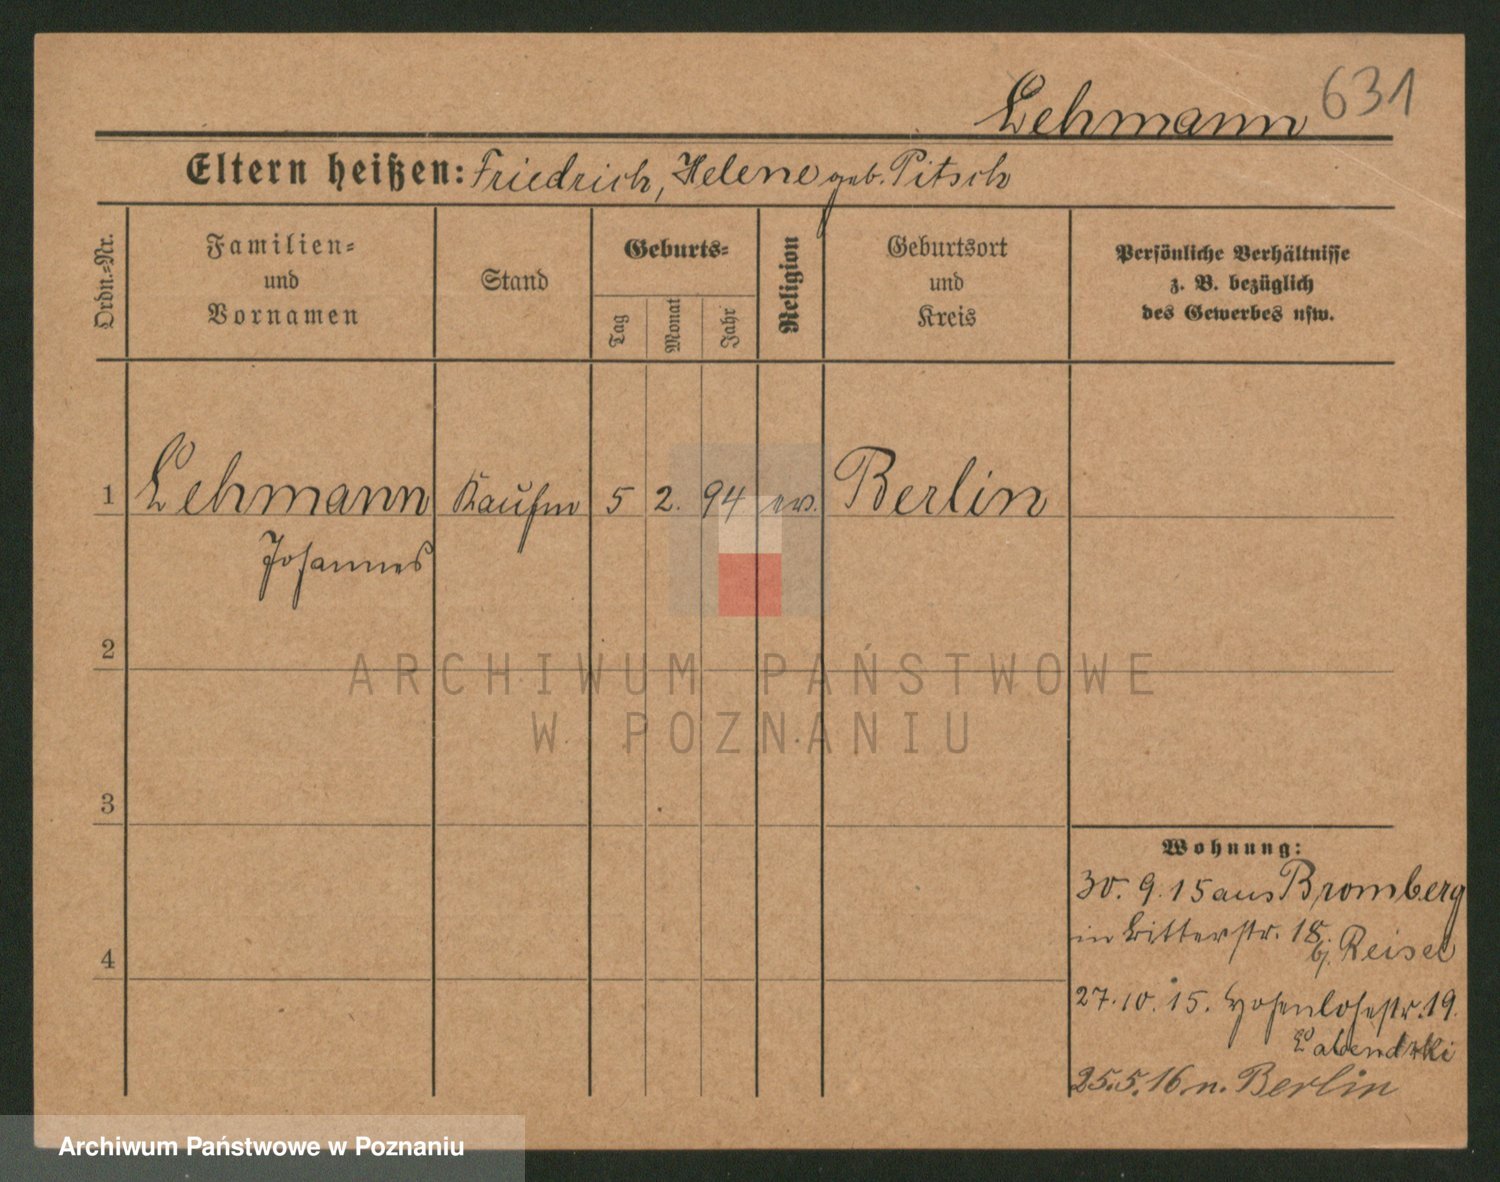 Lehmann 631
Eltern heißen: Friedrich, Helene geb. Pitsch
Ordn.-Nr.
Familien-
und
Vornamen
Stand
Geburts-
Tag
Monat
Jahr
Religion
Geburtsort
und
Kreis
Persönliche Verhältnisse
z. B. bezüglich
des Gewerbes usw.
1 Lehmann Kaufm 5 2. 94 ev. Berlin
Johannes
2
3
4
Wohnung:
30. 9. 15 aus Bromberg
in Ritterstr. 18
bj. Reisel
27. 10. 15. Hohenlohestr. 19.
Labendzki
25. 5. 16 n. Berlin
ARCHIWUM PAŃSTWOWE
W POZNANIU
Archiwum Państwowe w Poznaniu